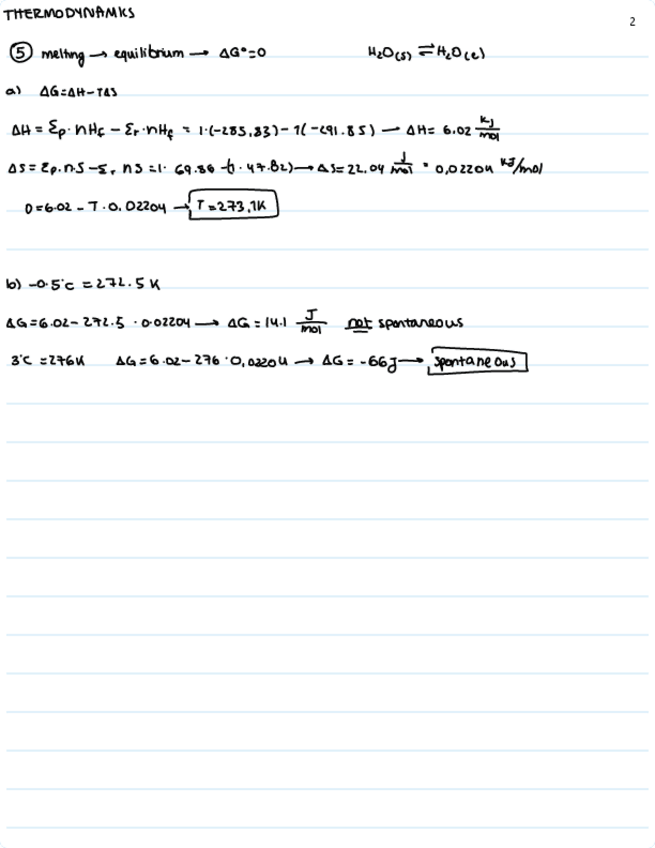 THERMODYNAMKS
2
⑤ melting → equilibrium → ΔG°=0 H₂O(s) ⇌ H₂O(ℓ)
a) ΔG=ΔH-TΔS
ΔH = Σp·nHf - Σr·nHf = 1·(-285,83)-1(-291.85) → ΔH= 6.02 kJ/mol
ΔS = Σp.n.S-Σr nS =1· 69.86 -(1·47.82) → ΔS=22.04 J/mol = 0,02204 kJ/mol
0=6.02 - T·0.02204 → T=273,1K
b) -0.5°C = 272.5 K
ΔG=6.02-272.5 ·0.02204 → ΔG = 14.1 J/mol not spontaneous
3°C =276K ΔG=6.02-276·0,02204 → ΔG = -66J → spontaneous